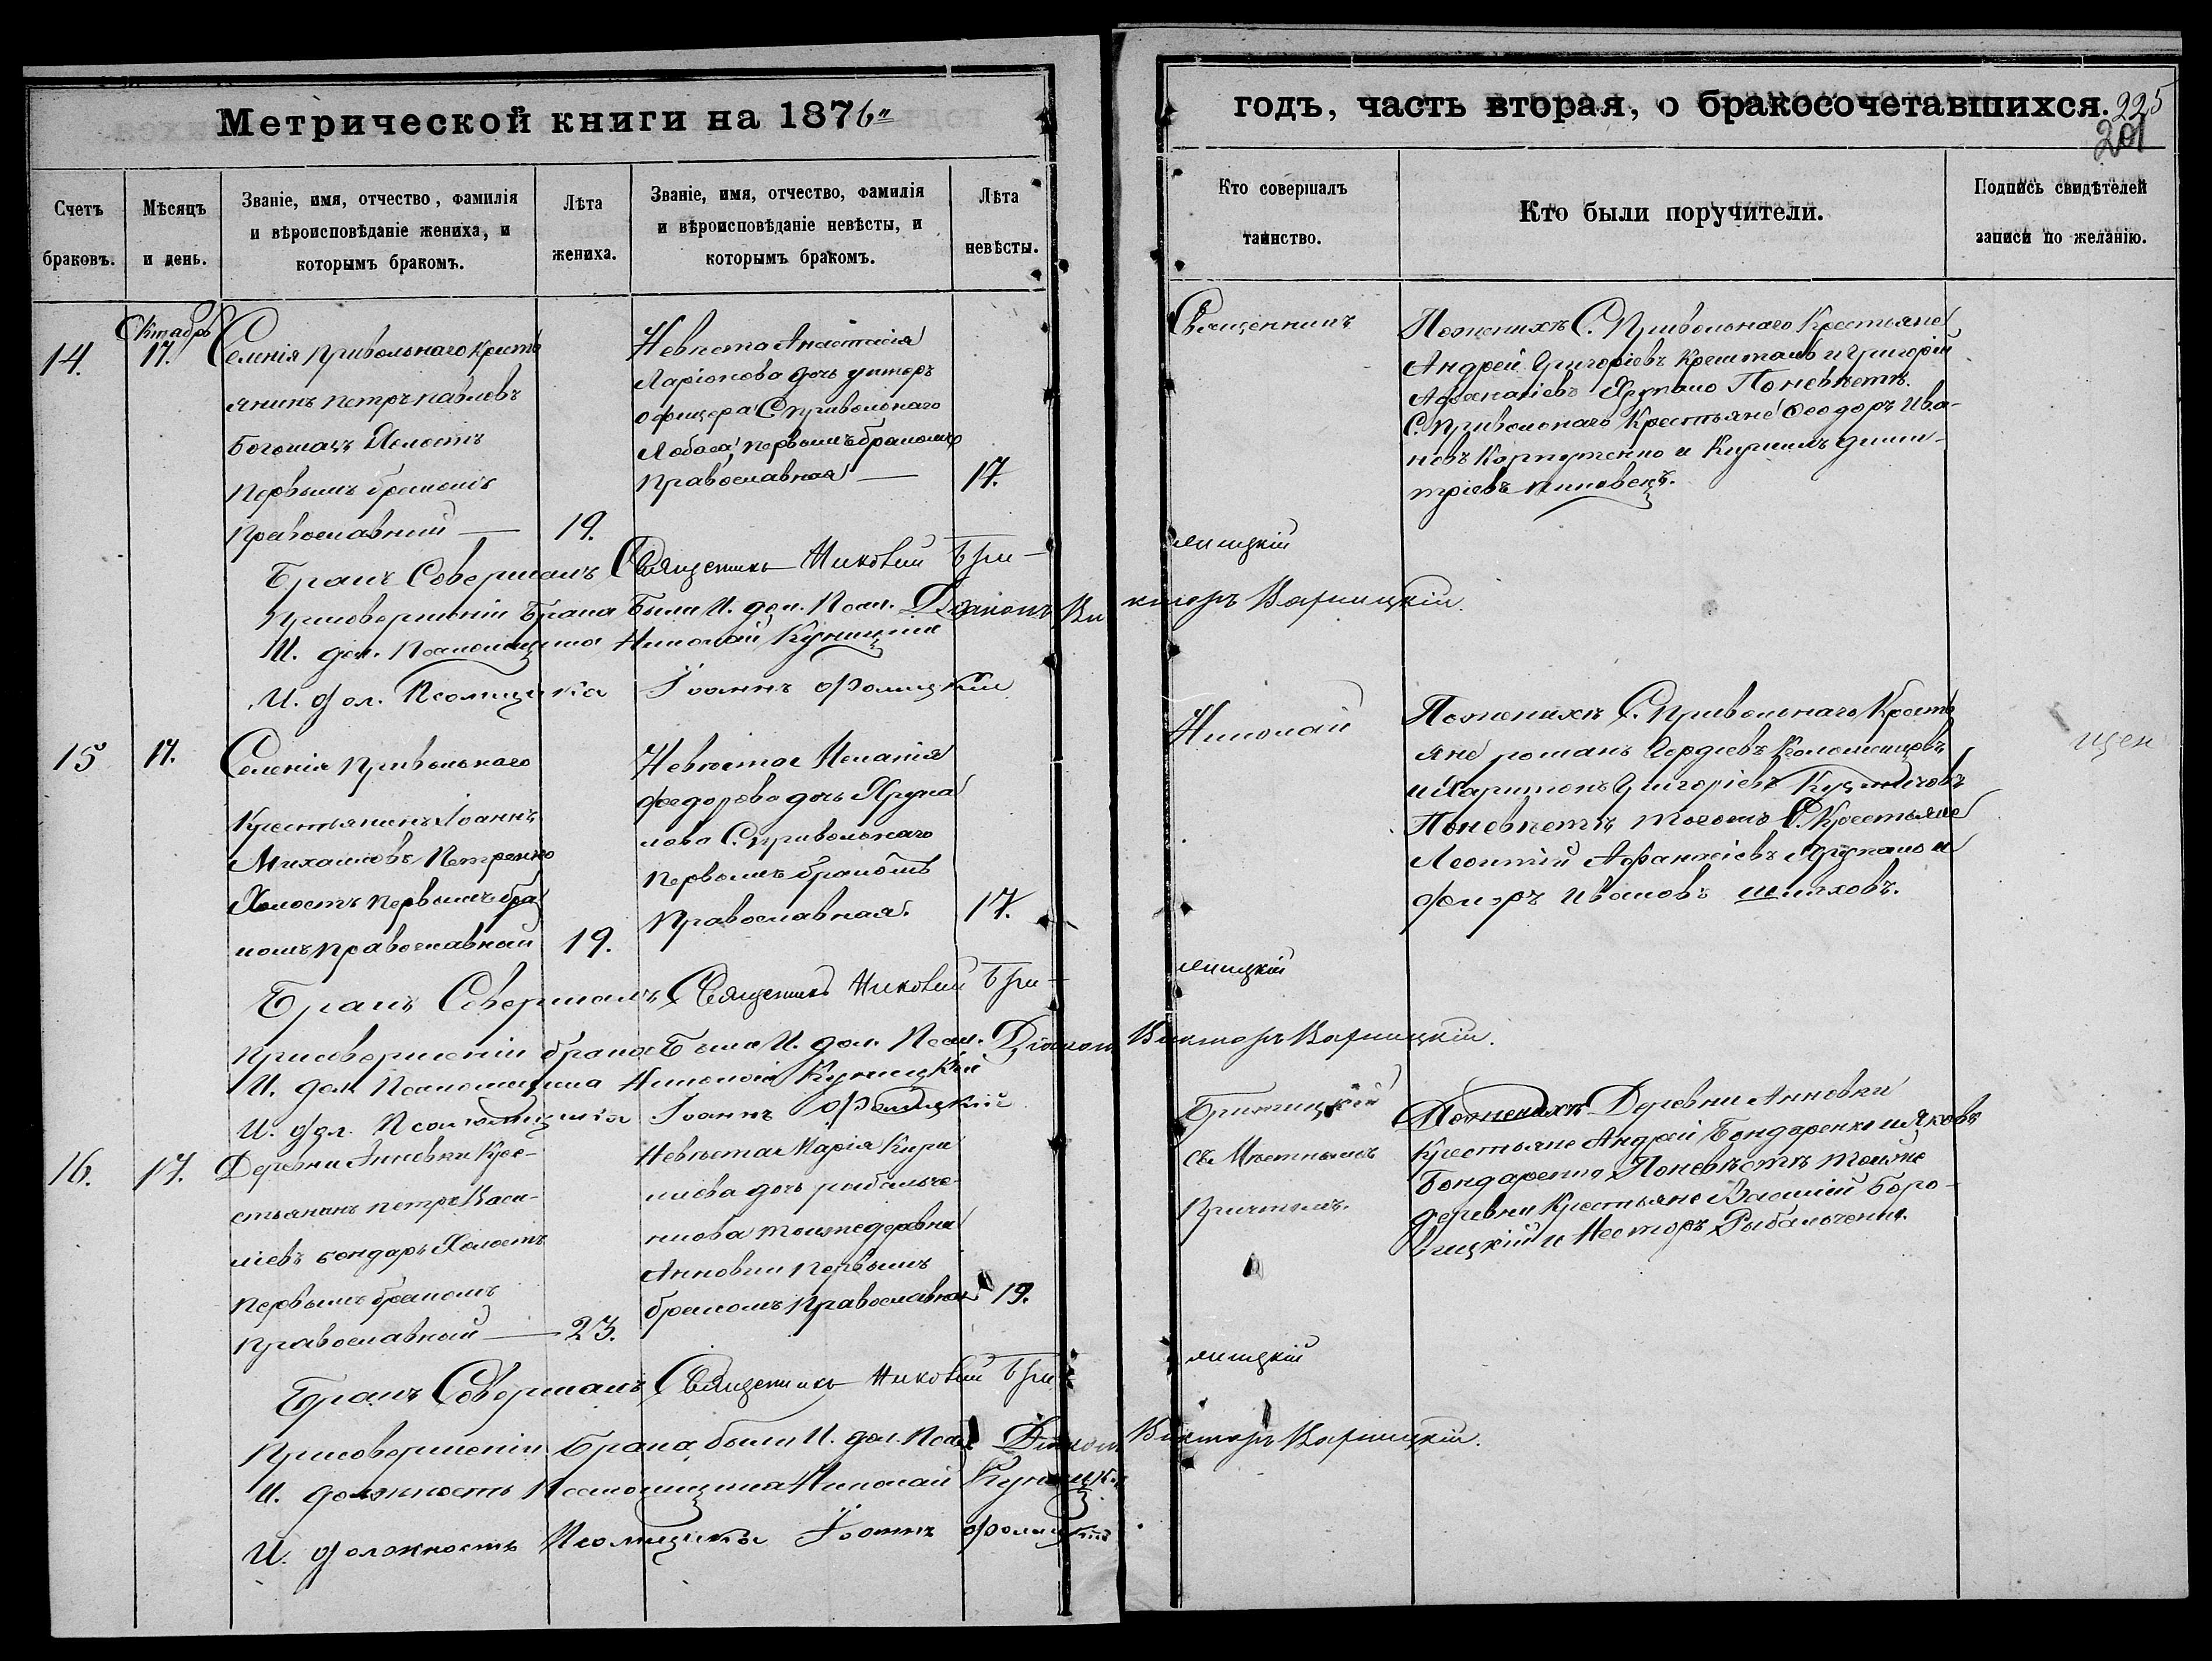 Метрической книги на 1876 годъ, часть вторая, о бракосочетавшихся.
225
201
Счетъ браковъ.
Мѣсяцъ и день.
Званіе, имя, отчество, фамилія
и вѣроисповѣданіе жениха, и
которымъ бракомъ.
Лѣта жениха.
Званіе, имя, отчество, фамилія
и вѣроисповѣданіе невѣсты, и
которымъ бракомъ.
Лѣта невѣсты.
Кто совершалъ
таинство.
Кто были поручители.
Подпись свидѣтелей
записи по желанію.
14.
Октабрь
17.
Селенія Привольнаго Кресть
янинъ Петръ Павловъ
Холостъ
Первымъ бракомъ
Православный
19.
Невѣста Анастасія
Ларіонова дочь унтеръ
офицера С. Привольнаго
Первымъ бракомъ
Православная
17.
Священникъ
По женихѣ С. Привольнаго Крестьяне
Андрей Григоріевъ и Григорій
Афанасіевъ По невѣстѣ.
С. Привольнаго Крестьяне Ѳеодоръ Ива-
новъ и Кирилъ Дими-
тріевъ
Бракъ Совершалъ Священникъ Николай Бри-
лицкій
При совершеніи Брака Были И. дол. Псал. Діаконъ Ви
кторъ Варницкій.
И. дол. Псаломщика Николай Куницкій
И. дол. Псаломщика Іоаннъ
15
17.
Селенія Привольнаго
Крестьянинъ Іоаннъ
Михаиловъ Петренко
Холостъ Первымъ бра
комъ Православный
19.
Невѣста Меланія
Федорова дочь Яруна
лова С. Привольнаго
Первымъ бракомъ
Православная.
17.
Николай
По женихѣ С. Привольнаго Кресть
яне Романъ Гордіевъ
и Харитонъ Григоріевъ
По невѣстѣ того же С. Крестьяне
Леонтій Афанасіевъ и
Ивановъ Шляховъ.
щен
Бракъ Совершалъ Священникъ Николай Бри-
лицкій
При совершеніи брака Были И. дол. Псал. Діаконъ
Викторъ Варницкій.
И. дол. Псаломщика Николай Куницкій
И. дол. Псаломщика Іоаннъ
16.
17.
Деревни Анновки Кре-
стьянинъ Петръ Васи-
ліевъ Бондарь Холостъ
Первымъ бракомъ
Православный
23.
Невѣста Марія Кири
лова дочь Рыбальче-
нкова той же деревни
Анновки Первымъ
бракомъ Православная
19.
съ Мѣстнымъ
Причтомъ.
По женихѣ Деревни Анновки
Крестьяне Андрей Бондаренко и Яковъ
Бондаренко, По невѣстѣ той же
деревни Крестьяне Василій Боро-
вицкій и Несторъ Рыбальченко.
Бракъ Совершалъ Священникъ Николай Бри
лицкій
При совершеніи Брака были И. дол. Псал. Діаконъ
Викторъ Варницкій.
И. должность Псаломщика Николай Куницкій
И. должность Псаломщика Іоаннъ